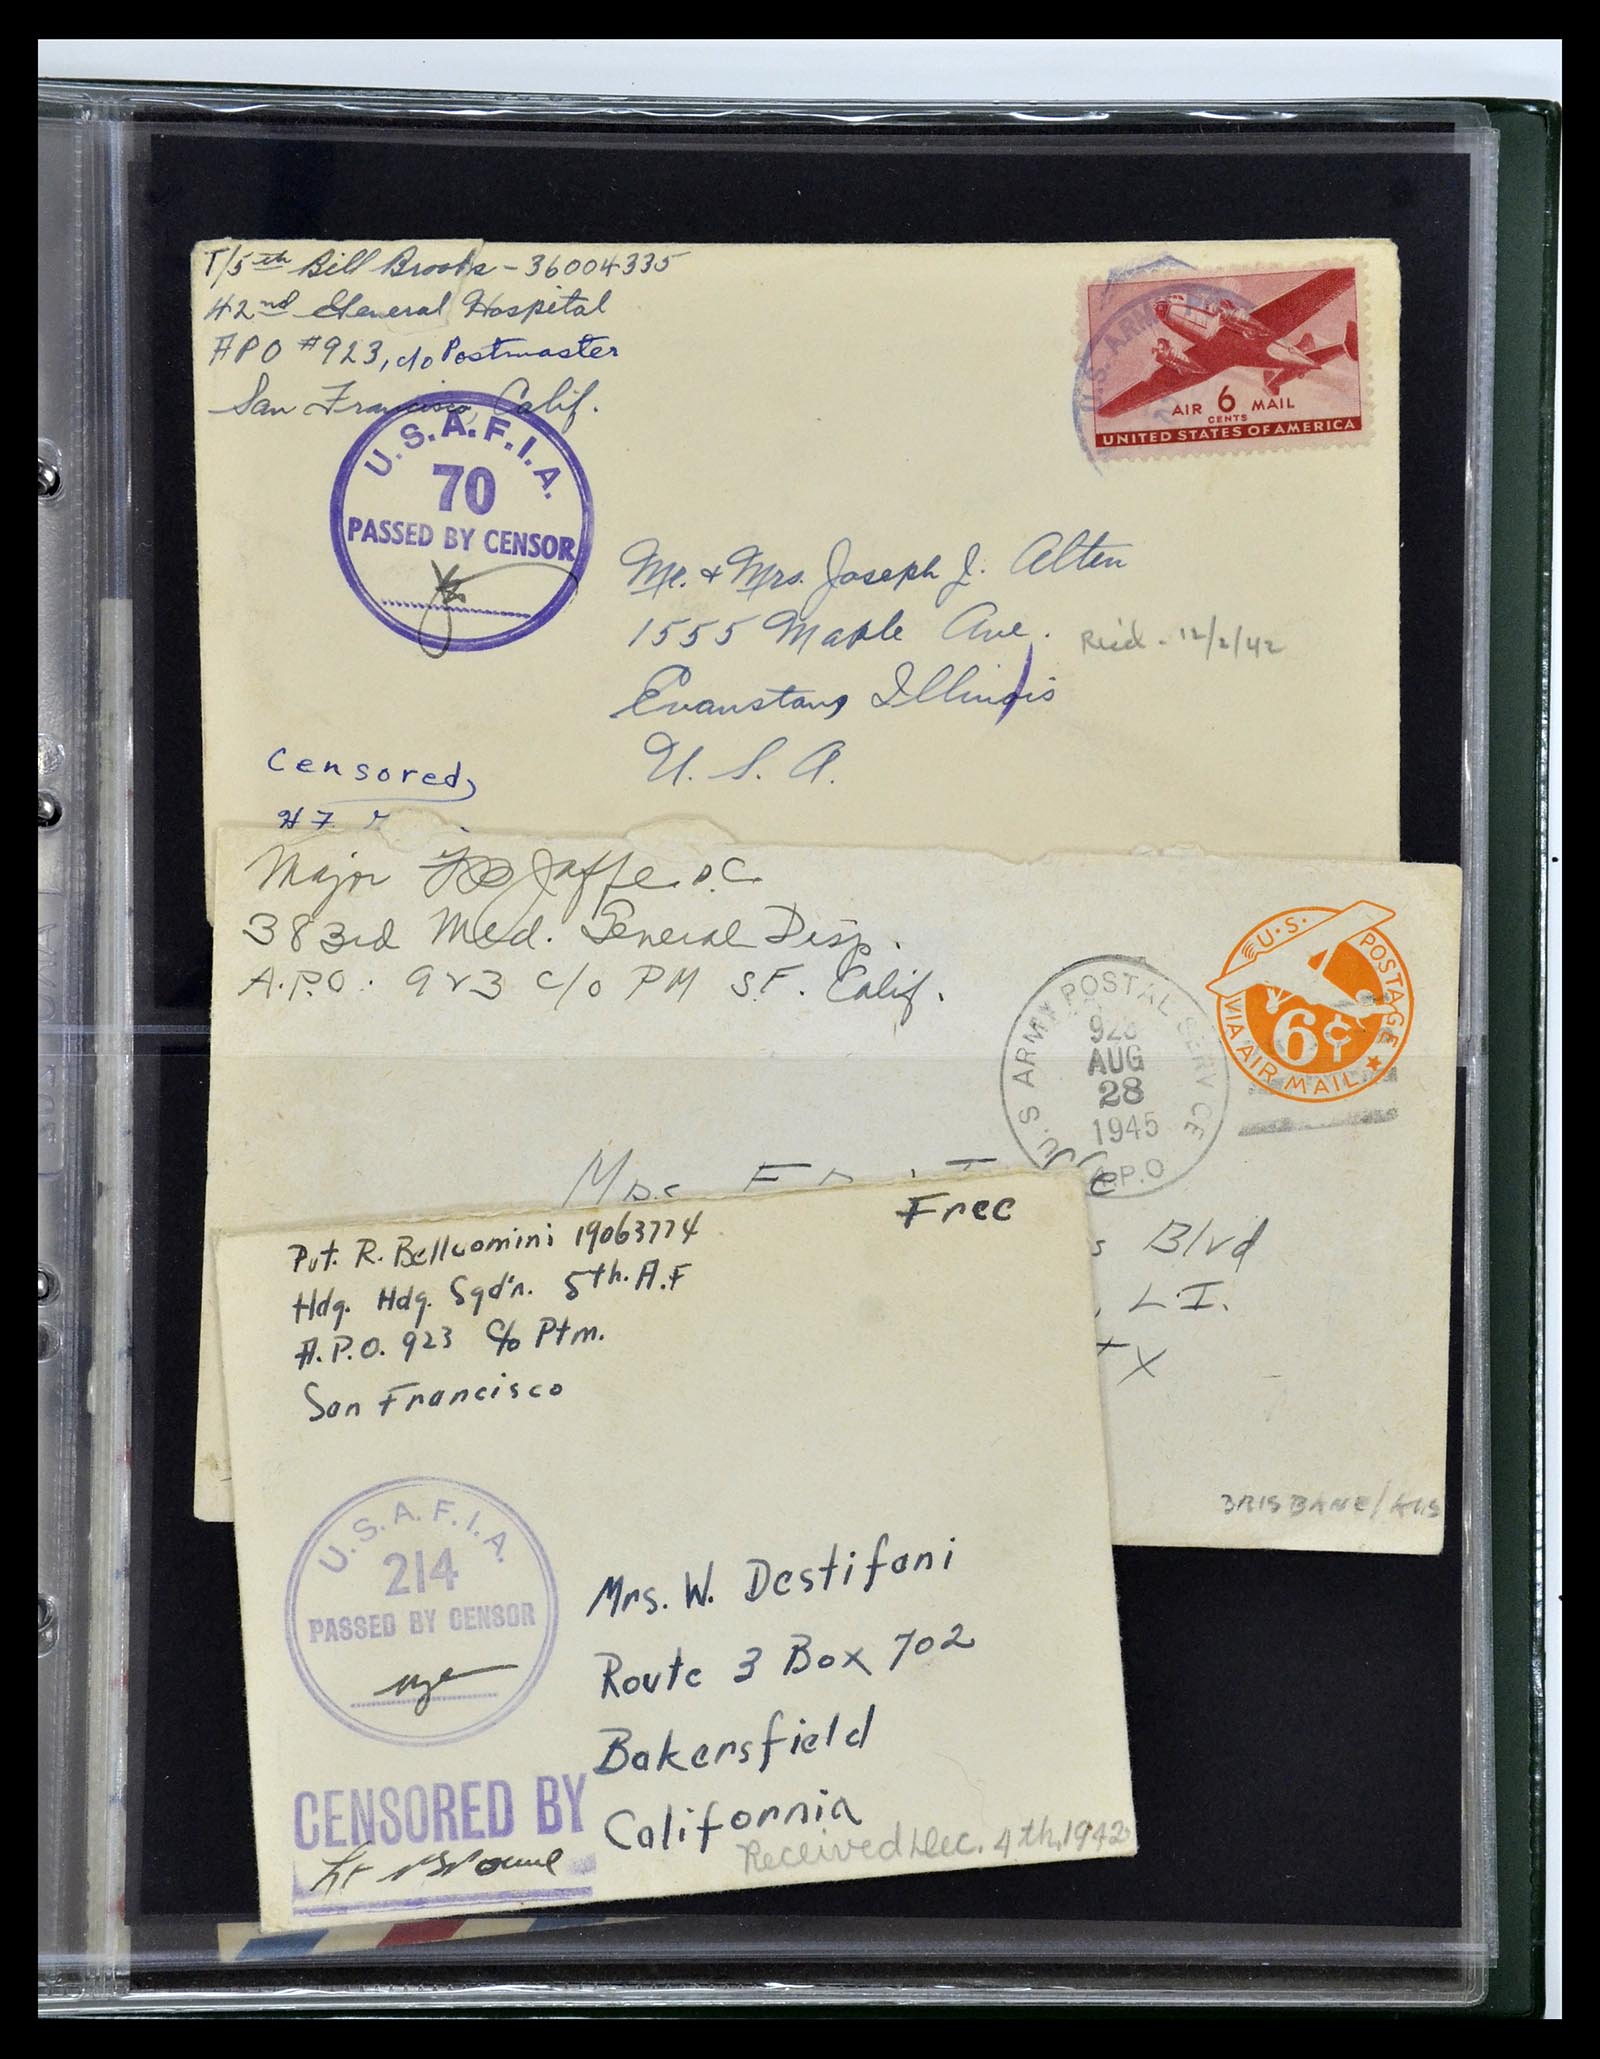 T/5th Bill Brooks - 36004335
42nd General Hospital
APO #923, c/o Postmaster
San Francisco, Calif.
U.S. ARMY
AIR 6 MAIL
CENTS
UNITED STATES OF AMERICA
U.S.A.F.I.A.
70
PASSED BY CENSOR
Mr. & Mrs. Joseph J. Alten
1555 Maple Ave.
Rec'd - 12/2/42
Evanston, Illinois
U. S. A.
Censored,
Major Jaffe D.C
383rd Med. General Disp.
A.P.O. 923 c/o PM S.F. Calif.
U.S. POSTAGE
6¢
VIA AIR MAIL
U.S ARMY POSTAL SERVICE
AUG
28
1945
A.P.O
Mrs
s Blvd
, L.I.
BRISBANE/AUS
Free
Pvt. R. Belluomini 19063774
Hdq. Hdq. Sqd'n. 5th. A.F
A.P.O. 923 c/o Ptm.
San Francisco
U.S.A.F.I.A.
214
PASSED BY CENSOR
Mrs. W. Destifani
Route 3 Box 702
Bakersfield
California
Received Dec. 4th, 1942
CENSORED BY
Lt